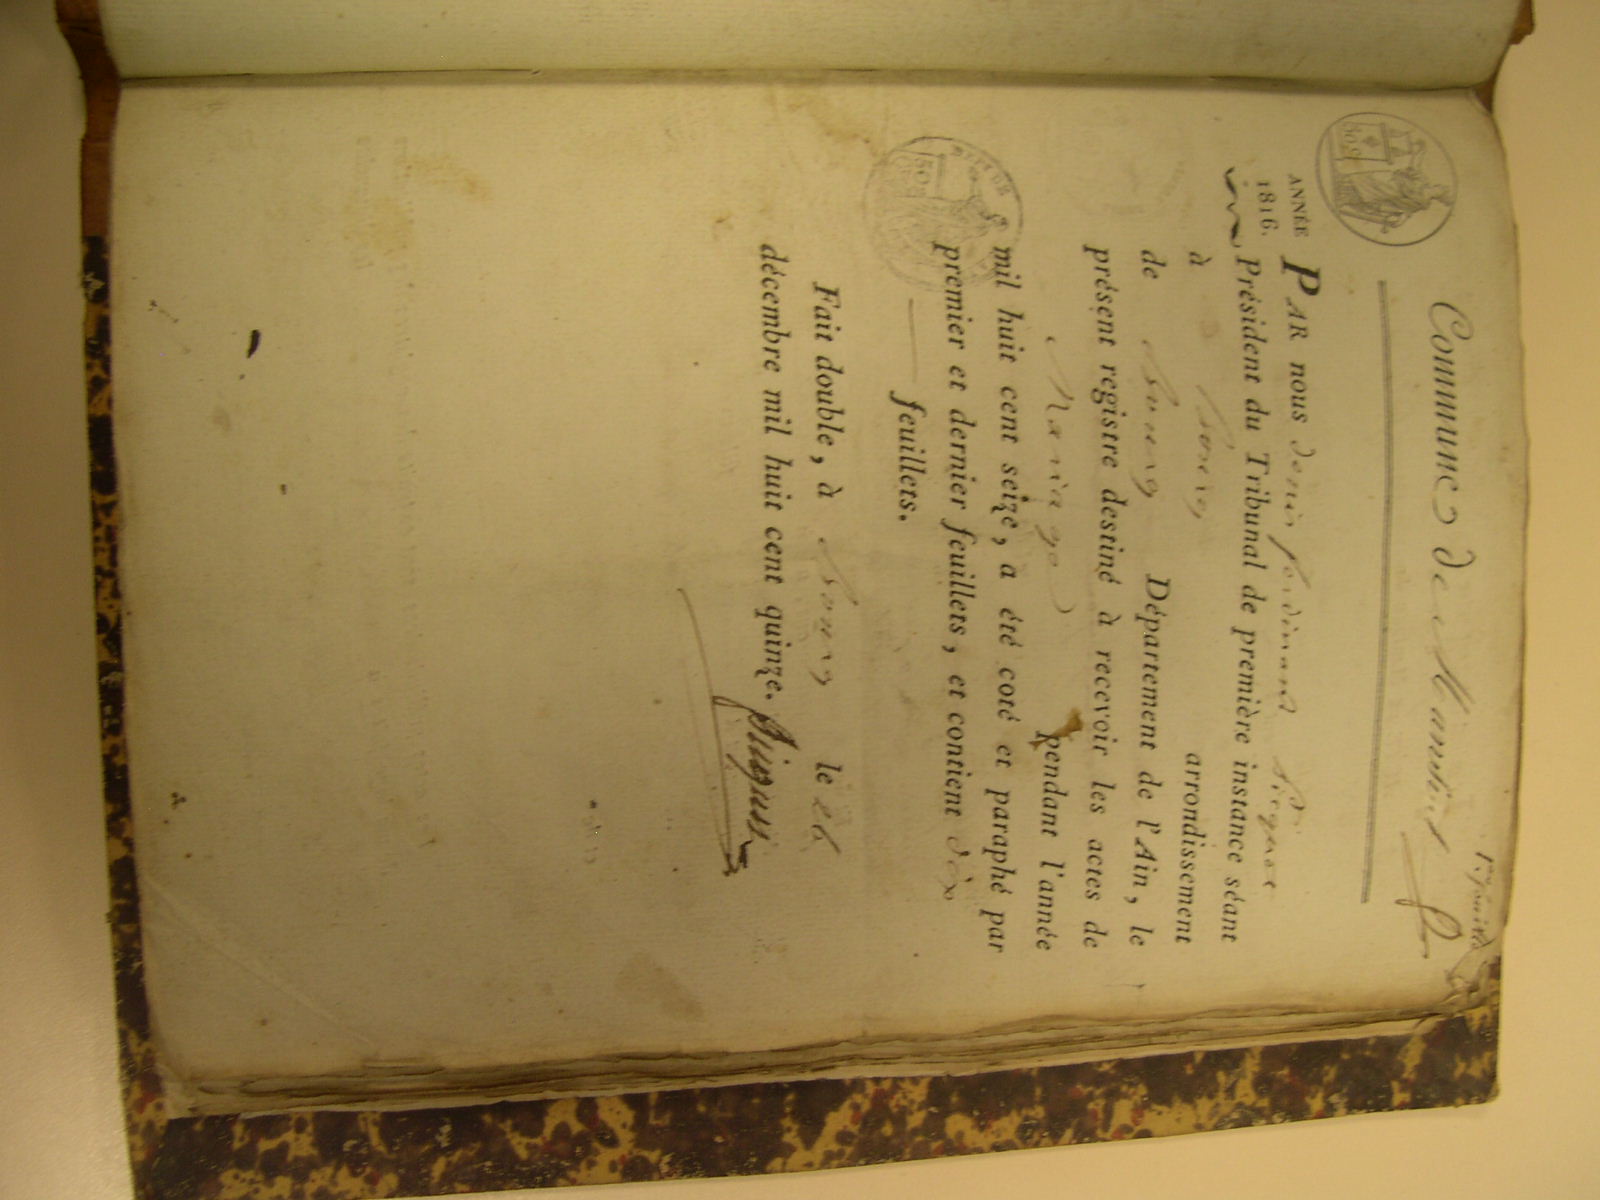 1er feuillet
Commune de Miribel
ANNÉE
1816.
PAR nous denis ferdinand
Président du Tribunal de première instance séant
à Bourg arrondissement
de Bourg Département de l'Ain, le
présent registre destiné à recevoir les actes de
Mariage pendant l'année
mil huit cent seize, a été coté et paraphé par
premier et dernier feuillets, et contient dix
feuillets.
Fait double, à Bourg le
décembre mil huit cent quinze.